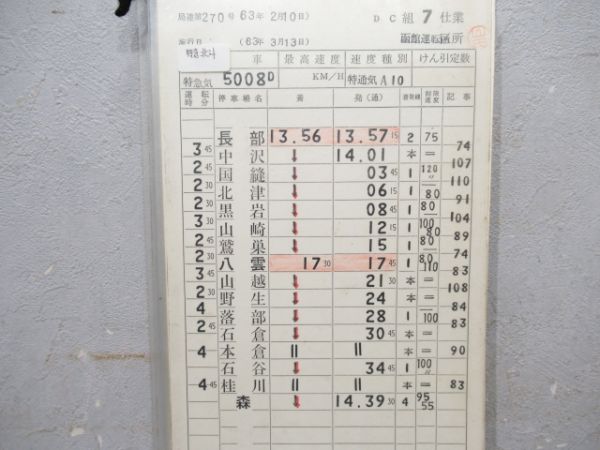 局達第270号 63年 2月10日) DC組 7 仕業
(63年 3月13日) 函館運転所
特急北斗
車 最高速度 速度種別 けん引定数
特急気 5008D KM/H 特通気 A10
運転時分 停車場名 着 発(通) 着発線 制限速度 記事
長部 13.56 13.57 15 2 75
3 45 74
中沢 ↓ 14.01 本 =
2 45 107
国縫 ↓ 03 45 1 120
2 30 110
北津 ↓ 06 15 1 80
2 30 91
黒岩 ↓ 08 45 1 80
3 30 104
山崎 ↓ 12 15 1 100 80
2 45 89
鷲巣 ↓ 15 1 80
2 30 74
八雲 17 30 17 45 1 80 110
3 45 83
山越 ↓ 21 30 本 =
2 30 108
野生 ↓ 24 本 =
4 84
落部 ↓ 28 1 100
2 45 83
石倉 ↓ 30 45 本 =
4 90
本倉 || || 本 =
石谷 ↓ 34 45 1 100
4 45 83
桂川 || || 本 =
森 ↓ 14.39 30 4 95 55